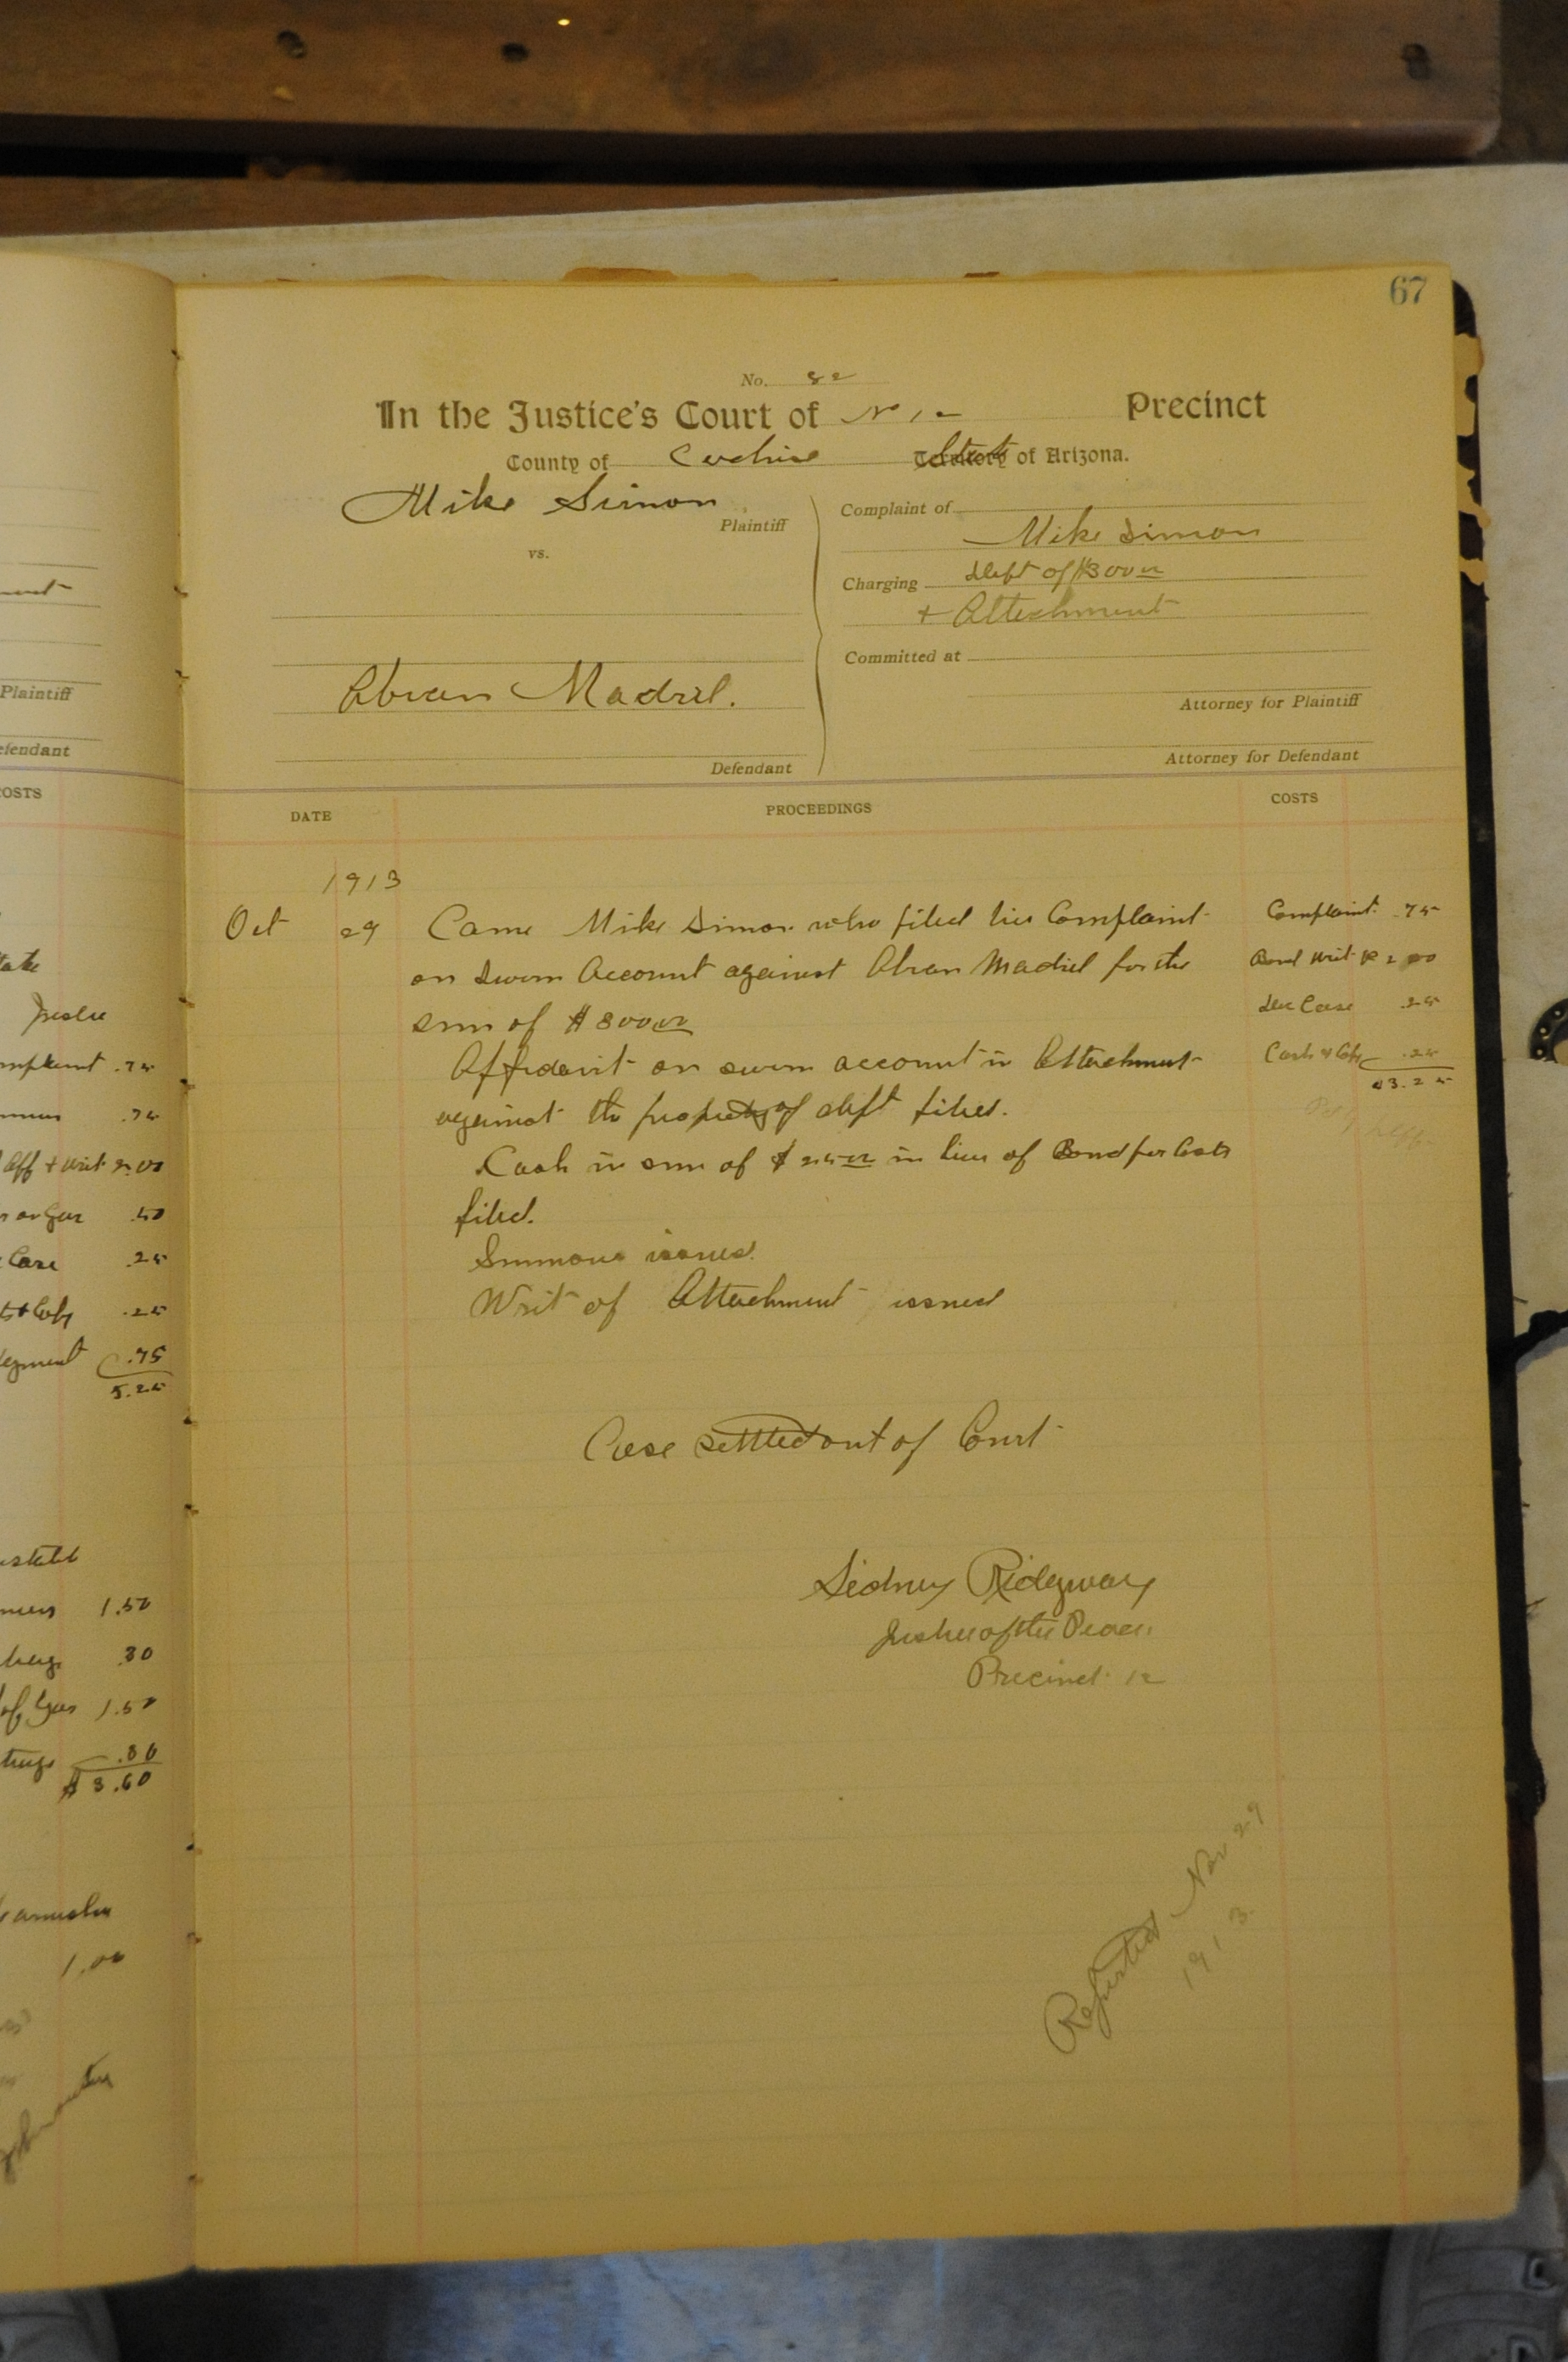 67
No. 82
In the Justice's Court of No 12 Precinct
County of Cochise State of Arizona.
Mike Simon
Plaintiff
vs.
Abran Madril.
Defendant
Complaint of
Mike Simon
Charging Debt of $300 00
+ Attachment
Committed at
Attorney for Plaintiff
Attorney for Defendant
DATE
PROCEEDINGS
COSTS
1913
Oct 29 Came Mike Simon who filed his Complaint Complaint .75
on sworn Account against Abran Madril for the Bond Writ 2 00
sum of $300 00 Case .25
Affidavit on sworn account in Attachment .25
$3.25
against the property of deft filed.
Cash in sum of $25 00 in lieu of Bond for Costs
filed.
Summons issued.
Writ of Attachment issued
Case settled out of Court
Sidney Ridgway
Justice of the Peace
Precinct 12
Reported Nov 29
1913
Plaintiff
efendant
OSTS
.75
.75
Aff + Writ 2.00
.50
Case .25
.25
.75
5.25
1.50
.30
1.50
.30
$3.60
1.00